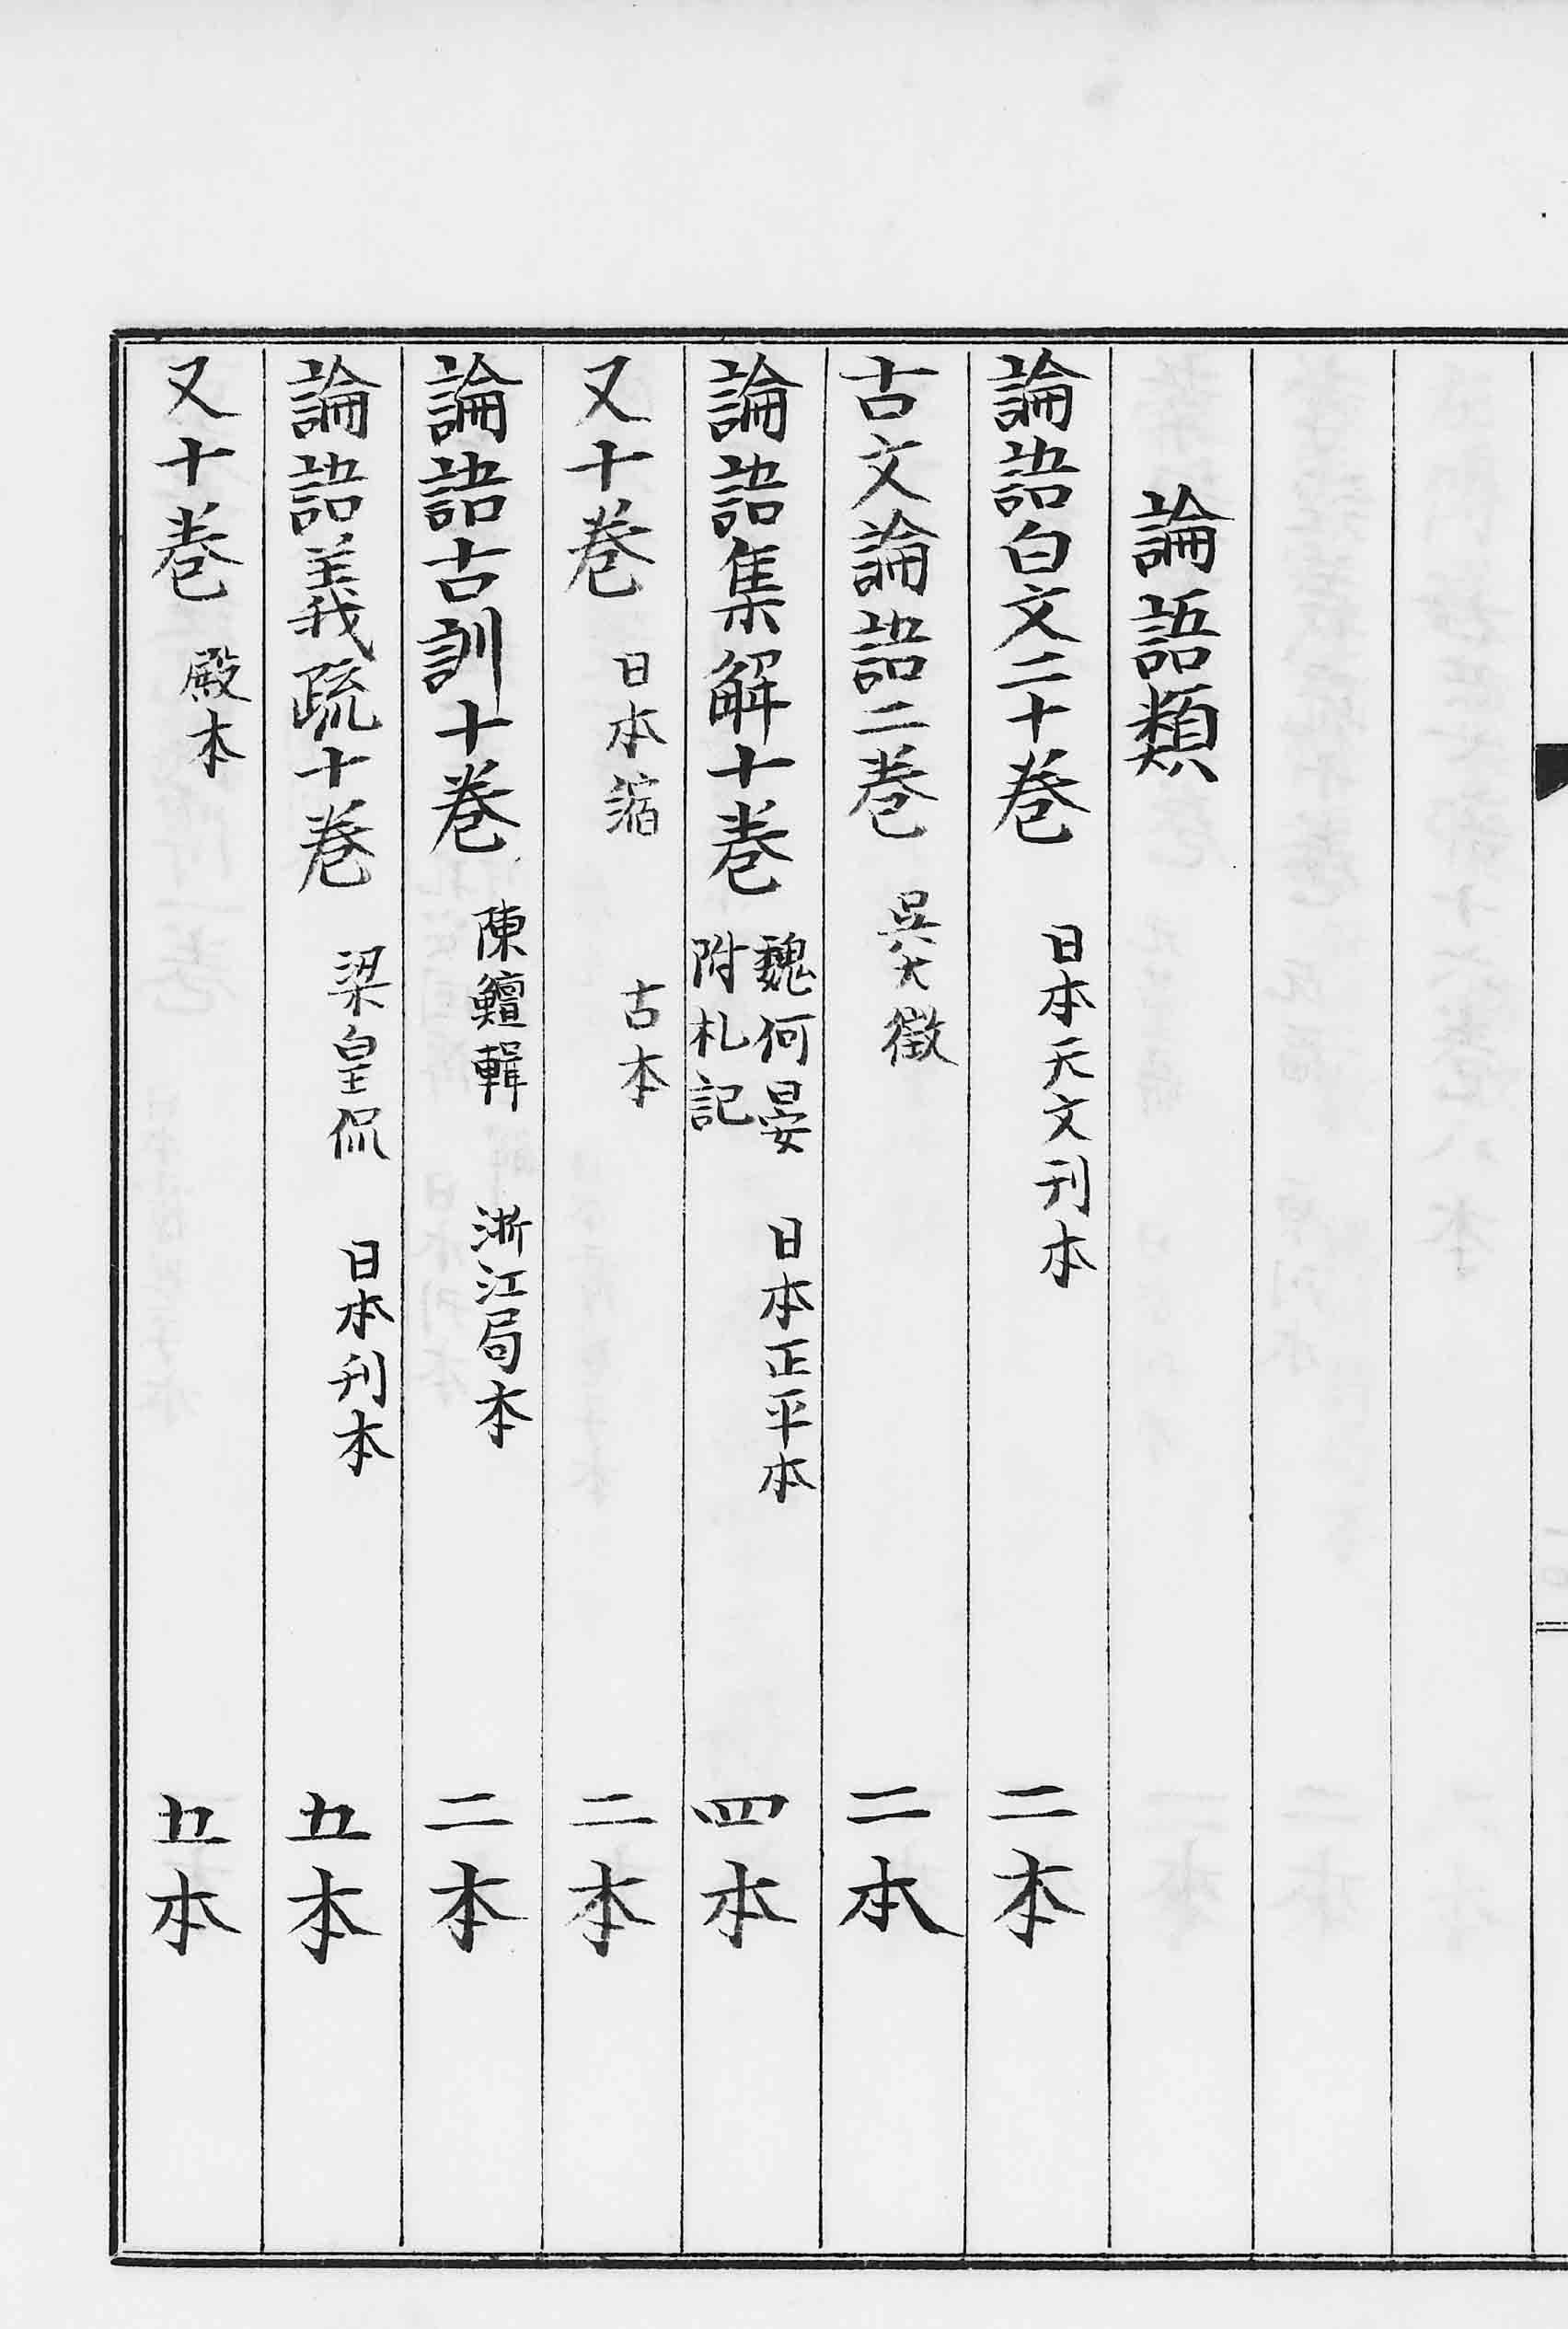 論語類
論語白文二十卷 日本天文刊本 二本
古文論語二卷 吳大徵 二本
論語集解十卷 魏何晏 附札記 日本正平本 四本
又十卷 日本 古本 二本
論語古訓十卷 陳鱣輯 浙江局本 二本
論語義疏十卷 梁皇侃 日本刊本 五本
又十卷 殿本 五本